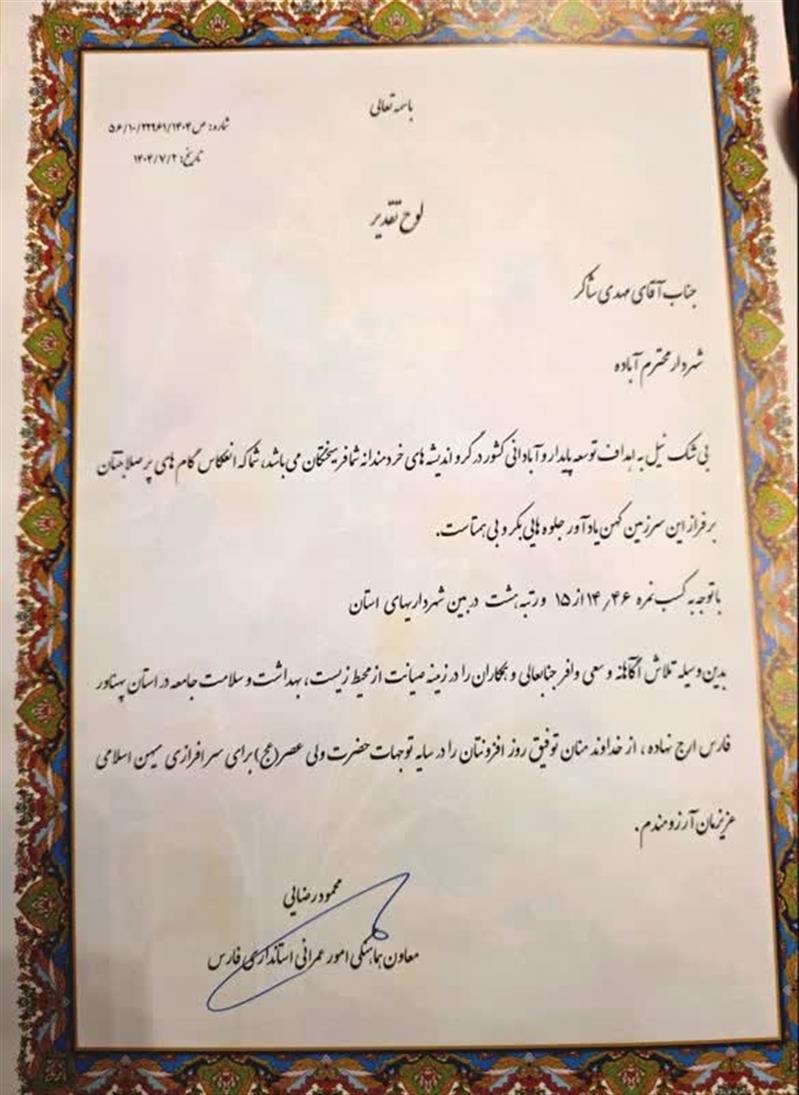 باسمه تعالی
شماره: ص۵۶/۱۰/۲۲۹۶۱/۱۴۰۴
تاریخ: ۱۴۰۴/۷/۲
لوح تقدیر
جناب آقای مهدی شاکر
شهردار محترم آباده
بی شک نیل به اهداف توسعه پایدار و آبادانی کشور در گرو اندیشه های خردمندانه شما فرهیختگان می باشد، شما که انعکاس گام های پر صلابتتان
بر فراز این سرزمین کهن یادآور جلوه هایی بکر و بی همتاست.
با توجه به کسب نمره ۱۴٫۴۶ از ۱۵ و رتبه هشت در بین شهرداریهای استان
بدین وسیله تلاش آگاهانه و سعی وافر جنابعالی و همکاران را در زمینه صیانت از محیط زیست، بهداشت و سلامت جامعه در استان پهناور
فارس ارج نهاده، از خداوند منان توفیق روز افزونتان را در سایه توجهات حضرت ولی عصر(عج) برای سرافرازی میهن اسلامی
عزیزمان آرزومندم.
محمود رضایی
معاون هماهنگی امور عمرانی استانداری فارس